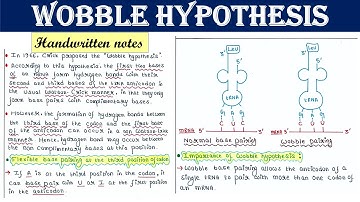 WOBBLE HYPOTHESIS
Handwritten notes
In 1966, Crick proposed the "Wobble hypothesis".
According to this hypothesis, the first two bases
of codon form hydrogen bonds with their
second and third bases of the anticodon in
the usual Watson-Crick manner. In this way they
form base pairs with complimentary bases.
However, the formation of hydrogen bonds between
the third base of the codon and the first base
of the anticodon can occur in a non Watson-Crick
manner. Hence, hydrogen bond may occur between
the non complimentary bases at this position.
Flexible base pairing at the third position of codon.
If G is at the third position in the codon, it
can base pair with U or I at the first position
in the anticodon.
LEU
LEU
tRNA
tRNA
mRNA 5'
3'
5'
3'
mRNA
Normal base pairing
Wobble pairing
Importance of Wobble hypothesis:
Wobble base pairing allows the anticodon of a
single tRNA to pair with more than one codon of
an mRNA.